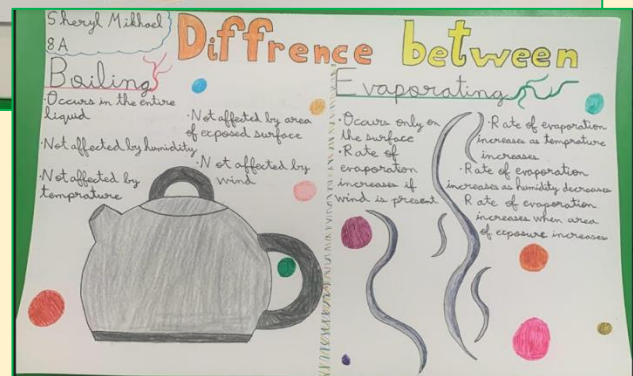 Sheryl Mikhael
8A
Diffrence between
Boiling
·Occurs in the entire
liquid
·Not affected by area
of exposed surface
·Not affected by humidity
·Not affected by
wind
·Not affected by
temprature
Evaporating
·Occurs only on
the surface
·Rate of
evaporation
increases if
wind is present
·Rate of evaporation
increases as temprature
increases
·Rate of evaporation
increases as humidity decreases
Rate of evaporation
increases when area
of exposure increases